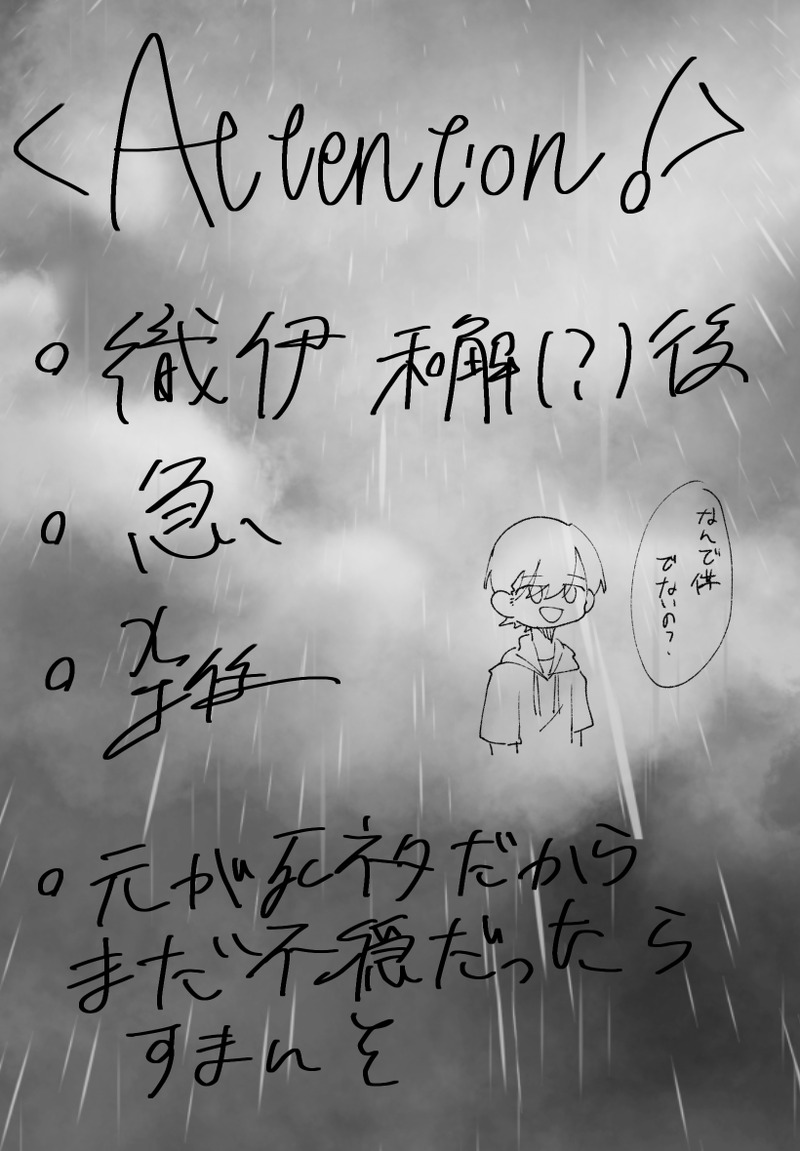 <Attention!>
。織伊 和解(?)後
。急い
。雑
。元が死ネタだから
まだ不穏だったら
すまんそ
なんで体
でないの?